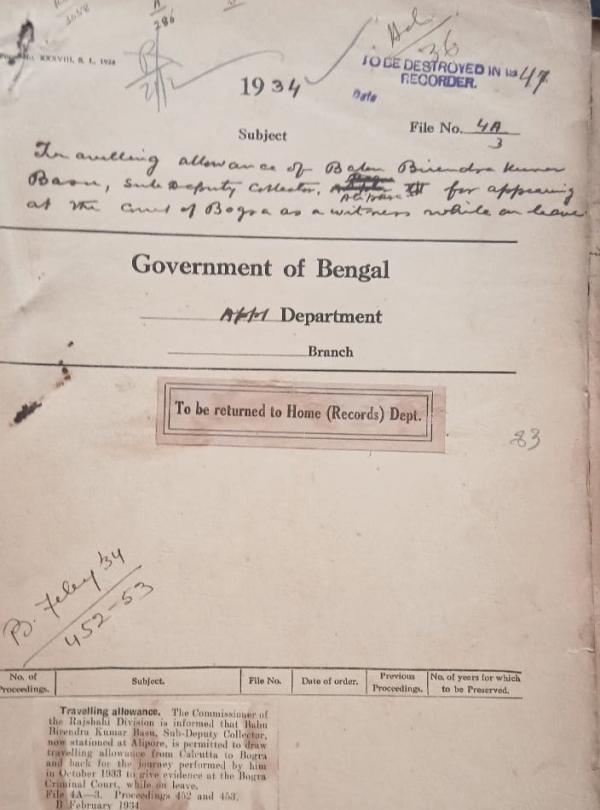 A
286
3058
XXXVIII, S. I., 1924
36
TO BE DESTROYED IN 1947
RECORDER.
Date
1934
File No. 4A
3
Subject
Travelling allowance of Babu Birendra Kumar
Basu, Sub Deputy Collector, Alipore for appearing
at the Court of Bogra as a witness while on leave
Government of Bengal
Appt Department
Branch
To be returned to Home (Records) Dept.
83
B. Feby '34
452-53
No. of Proceedings. Subject. File No. Date of order. Previous Proceedings. No. of years for which to be Preserved.
Travelling allowance. The Commissioner of
the Rajshahi Division is informed that Babu
Birendra Kumar Basu, Sub-Deputy Collector,
now stationed at Alipore, is permitted to draw
travelling allowance from Calcutta to Bogra
and back for the journey performed by him
in October 1933 to give evidence at the Bogra
Criminal Court, while on leave.
File 4A—3. Proceedings 452 and 453.
B February 1934.